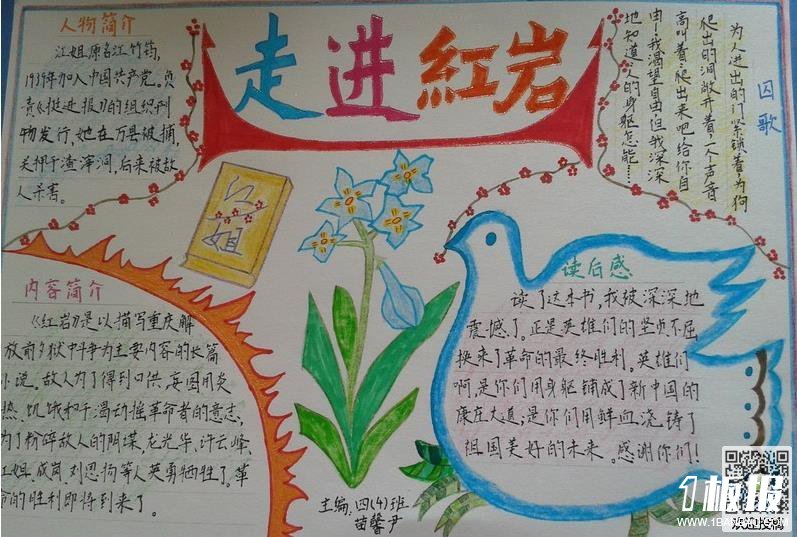 走进紅岩
人物简介
江姐原名江竹筠,
1939年加入中国共产党。负
责《挺进报》的组织刊
物发行,她在万县被捕,
关押于渣滓洞,后来被敌
人杀害。
江姐
囚歌
为人进出的门紧锁着,为狗
爬出的洞敞开着,一个声音
高叫着:爬出来吧,给你自
由!我渴望自由,但我深深
地知道,人的身躯怎能……
内容简介
《红岩》是以描写重庆解
放前夕狱中斗争为主要内容的长篇
小说。敌人为了得到口供,妄图用炎
热、饥饿和干渴动摇革命者的意志,
为了粉碎敌人的阴谋,龙光华、许云峰、
江姐、成岗、刘思扬等人英勇牺牲了。革
命的胜利即将到来了。
读后感
读了这本书,我被深深地
震憾了。正是英雄们的坚贞不屈
换来了革命的最终胜利。英雄们
啊,是你们用身躯铺成了新中国的
康庄大道,是你们用鲜血浇铸了
祖国美好的未来。感谢你们!
主编:四(4)班
苗馨尹
1板报
WWW.1BANBAO.COM
欢迎投稿